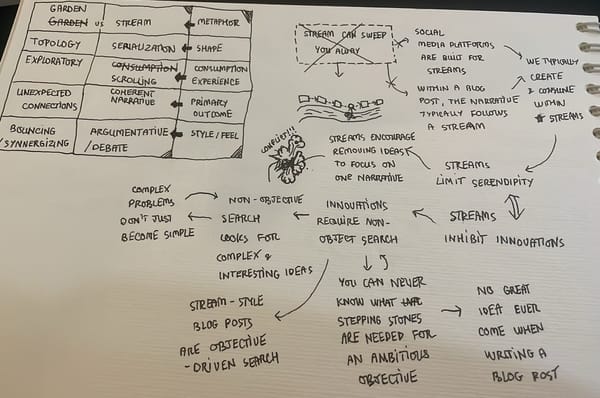 GARDEN
GARDEN vs STREAM METAPHOR
TOPOLOGY SERIALIZATION SHAPE
EXPLORATORY CONSUMPTION SCROLLING CONSUMPTION EXPERIENCE
UNEXPECTED CONNECTIONS COHERENT NARRATIVE PRIMARY OUTCOME
BOUNCING /SYNNERGIZING ARGUMENTATIVE /DEBATE STYLE/FEEL
STREAM CAN SWEEP
YOU AWAY
SOCIAL
MEDIA PLATFORMS
ARE BUILT FOR
STREAMS
WITHIN A BLOG
POST, THE NARRATIVE
TYPICALLY FOLLOWS
A STREAM
WE TYPICALLY
CREATE
& CONSUME
WITHIN
STREAMS
STREAMS
LIMIT SERENDIPITY
STREAMS ENCOURAGE
REMOVING IDEAS
TO FOCUS ON
ONE NARRATIVE
CONFLICT!!!
STREAMS
INHIBIT INNOVATIONS
INNOVATIONS
REQUIRE NON-
OBJECT SEARCH
NON-OBJECTIVE
SEARCH
LOOKS FOR
COMPLEX &
INTERESTING IDEAS
COMPLEX
PROBLEMS
DON'T JUST
BECOME SIMPLE
STREAM-STYLE
BLOG POSTS
ARE OBJECTIVE
-DRIVEN SEARCH
YOU CAN NEVER
KNOW WHAT
STEPPING STONES
ARE NEEDED FOR
AN AMBITIOUS
OBJECTIVE
NO GREAT
IDEA EVER
COME WHEN
WRITING A
BLOG POST